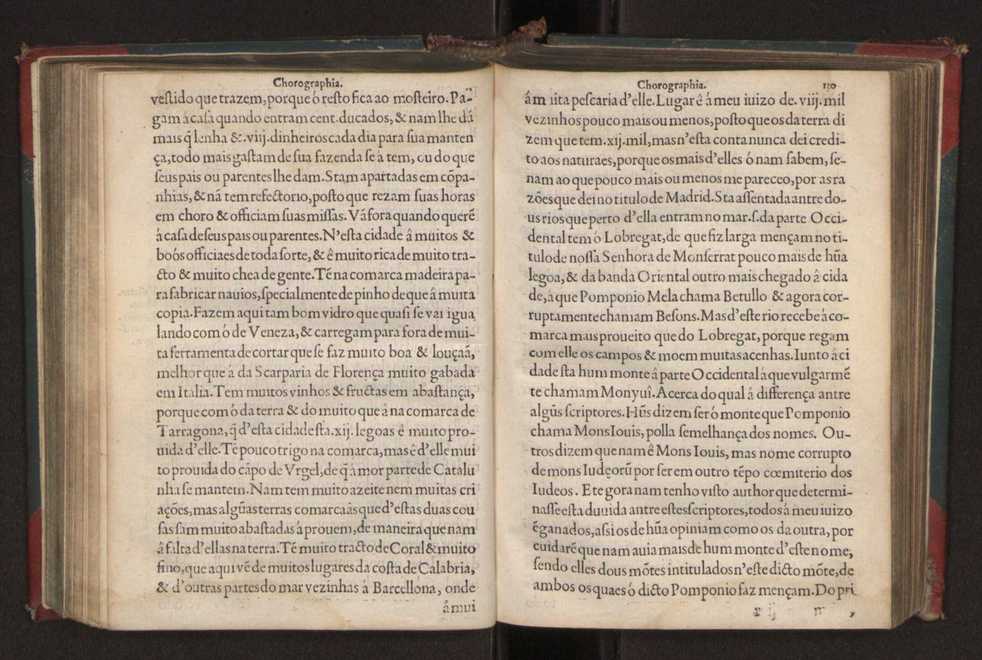 Chorographia.
vestido que trazem, porque ó resto fica ao mosteiro. Pa-
gam à casa quando entram cent. ducados, & nam lhe dã
mais q̃ lenha & .viij. dinheiros cada dia para sua manten
ça, todo mais gastam de sua fazenda se â tem, ou do que
seus pais ou parentes lhe dam. Stam apartadas em cõpa-
nhias, & nã tem refectorio, posto que rezam suas horas
em choro & officiam suas missas. Vã fora quando querẽ
â casa de seus pais ou parentes. N'esta cidade â muitos &
boós officiaes de toda sorte, & ê muito rica de muito tra-
cto & muito chea de gente. Tẽ na comarca madeira pa-
ra fabricar nauios, specialmente de pinho de que â muita
copia. Fazem aqui tam bom vidro que quasi se vai igua
lando com ó de Veneza, & carregam para fora de mui-
ta ferramenta de cortar que se faz muito boa & louçaã,
melhor que â da Scarparia de Florença muito gabada
em Italia. Tem muitos vinhos & fructas em abastança,
porque com ó da terra & do muito que â na comarca de
Tarragona, q̃ d'esta cidade sta .xij. legoas ê muito pro-
uida d'elle. Tẽ pouco trigo na comarca, mas ê d'elle mui
to prouida do cãpo de Vrgel, de q̃ â mor parte de Catalu
nha se mantem. Nam tem muito azeite nem muitas cri
ações, mas algũas terras comarcaãs que d'estas duas cou
sas sam muito abastadas â prouem, de maneira que nam
â falta d'ellas na terra. Tẽ muito tracto de Coral & muito
fino, que aqui vẽ de muitos lugares da costa de Calabria,
& d'outras partes do mar vezinhas â Barcellona, onde
â mui
Chorographia. 130
âm uita pescaria d'elle. Lugar ê â meu iuizo de .viij. mil
vezinhos pouco mais ou menos, posto que os da terra di
zem que tem .xij. mil, mas n'esta conta nunca dei credi-
to aos naturaes, porque os mais d'elles ó nam sabem, se-
nam ao que pouco mais ou menos me pareceo, por as ra
zões que dei no titulo de Madrid. Sta assentada antre do-
us rios que perto d'ella entram no mar. s. da parte Occi-
dental tem ó Lobregat, de que fiz larga mençam no ti-
tulo de nossa Senhora de Monserrat pouco mais de hũa
legoa, & da banda Oriental outro mais chegado â cida
de, a que Pomponio Mela chama Betullo & agora cor-
ruptamente chamam Besons. Mas d'este rio recebe â co-
marca mais proueito que do Lobregat, porque regam
com elle os campos & moem muitas acenhas. Iunto â ci
dade sta hum monte â parte Occidental â que vulgarmẽ
te chamam Monyuî. Acerca do qual â differença antre
algũs scriptores. Hũs dizem ser ó monte que Pomponio
chama Mons Iouis, polla semelhança dos nomes. Ou-
tros dizem que nam ê Mons Iouis, mas nome corrupto
de mons Iudęorũ por ser em outro tẽpo cœmiterio dos
Iudeos. E te gora nam tenho visto author que determi-
nasse esta duuida antre estes scriptores, todos â meu iuizo
ẽganados, assi os de hũa opiniam como os da outra, por
cuidarẽ que nam auia mais de hum monte d'este nome,
sendo elles dous mõtes intitulados n'este dicto mõte, de
ambos os quaes ó dicto Pomponio faz mençam. Do pri